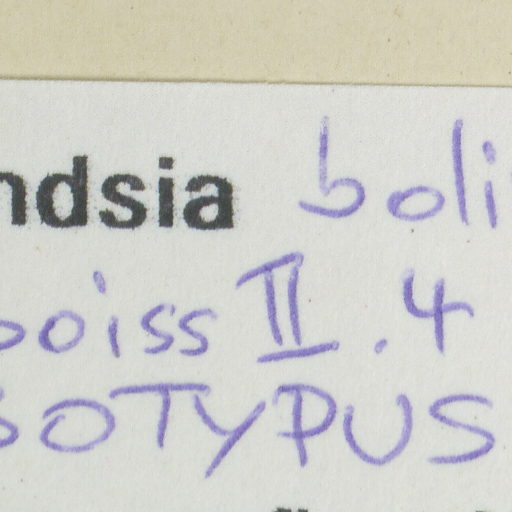 ndsia boli
oiss II.4
SOTYPUS